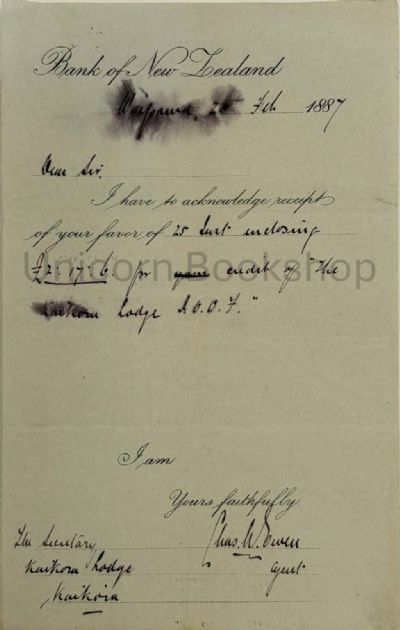 Bank of New Zealand
Waipawa, 26 Feb 1887
Dear Sir.
I have to acknowledge receipt
of your favor of 25 Inst enclosing
£2:17:6 for your credit of "The
Kaikora Lodge I.O.O.F."
Unicorn Bookshop
I am
Yours faithfully.
Chas. W. Owen
Agent
The Secretary
Kaikora Lodge
Kaikora